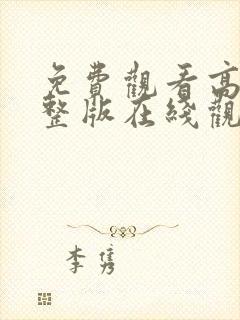 免費觀看高
整版在綫觀
李隽